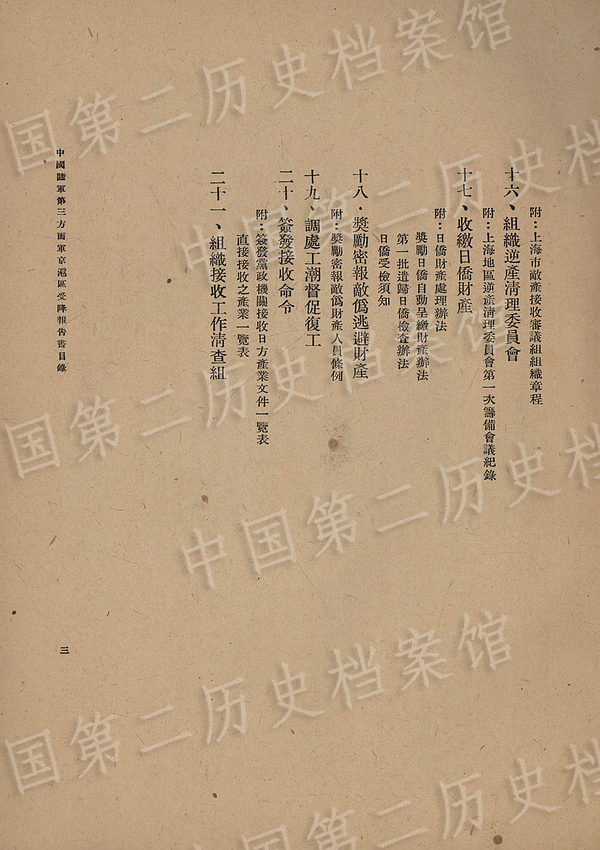 附：上海市敵產接收審議組組織章程
十六、組織逆產淸理委員會
附：上海地區逆產淸理委員會第一次籌備會議紀錄
十七、收繳日僑財產
附：日僑財產處理辦法
獎勵日僑自動呈繳財產辦法
第一批遣歸日僑檢查辦法
日僑受檢須知
十八．獎勵密報敵僞逃避財產
附：獎勵密報敵僞財產人員條例
十九、調處工潮督促復工
二十、簽發接收命令
附：簽發黨政機關接收日方產業文件一覽表
直接接收之產業一覽表
二十一、組織接收工作淸查組
中國陸軍第三方面軍京滬區受降報告書目錄
三
国第二历史档案馆
中国第二历史档
国第二历史档案馆
中国第二历史档
国第二历史档案馆
中国第二历史档